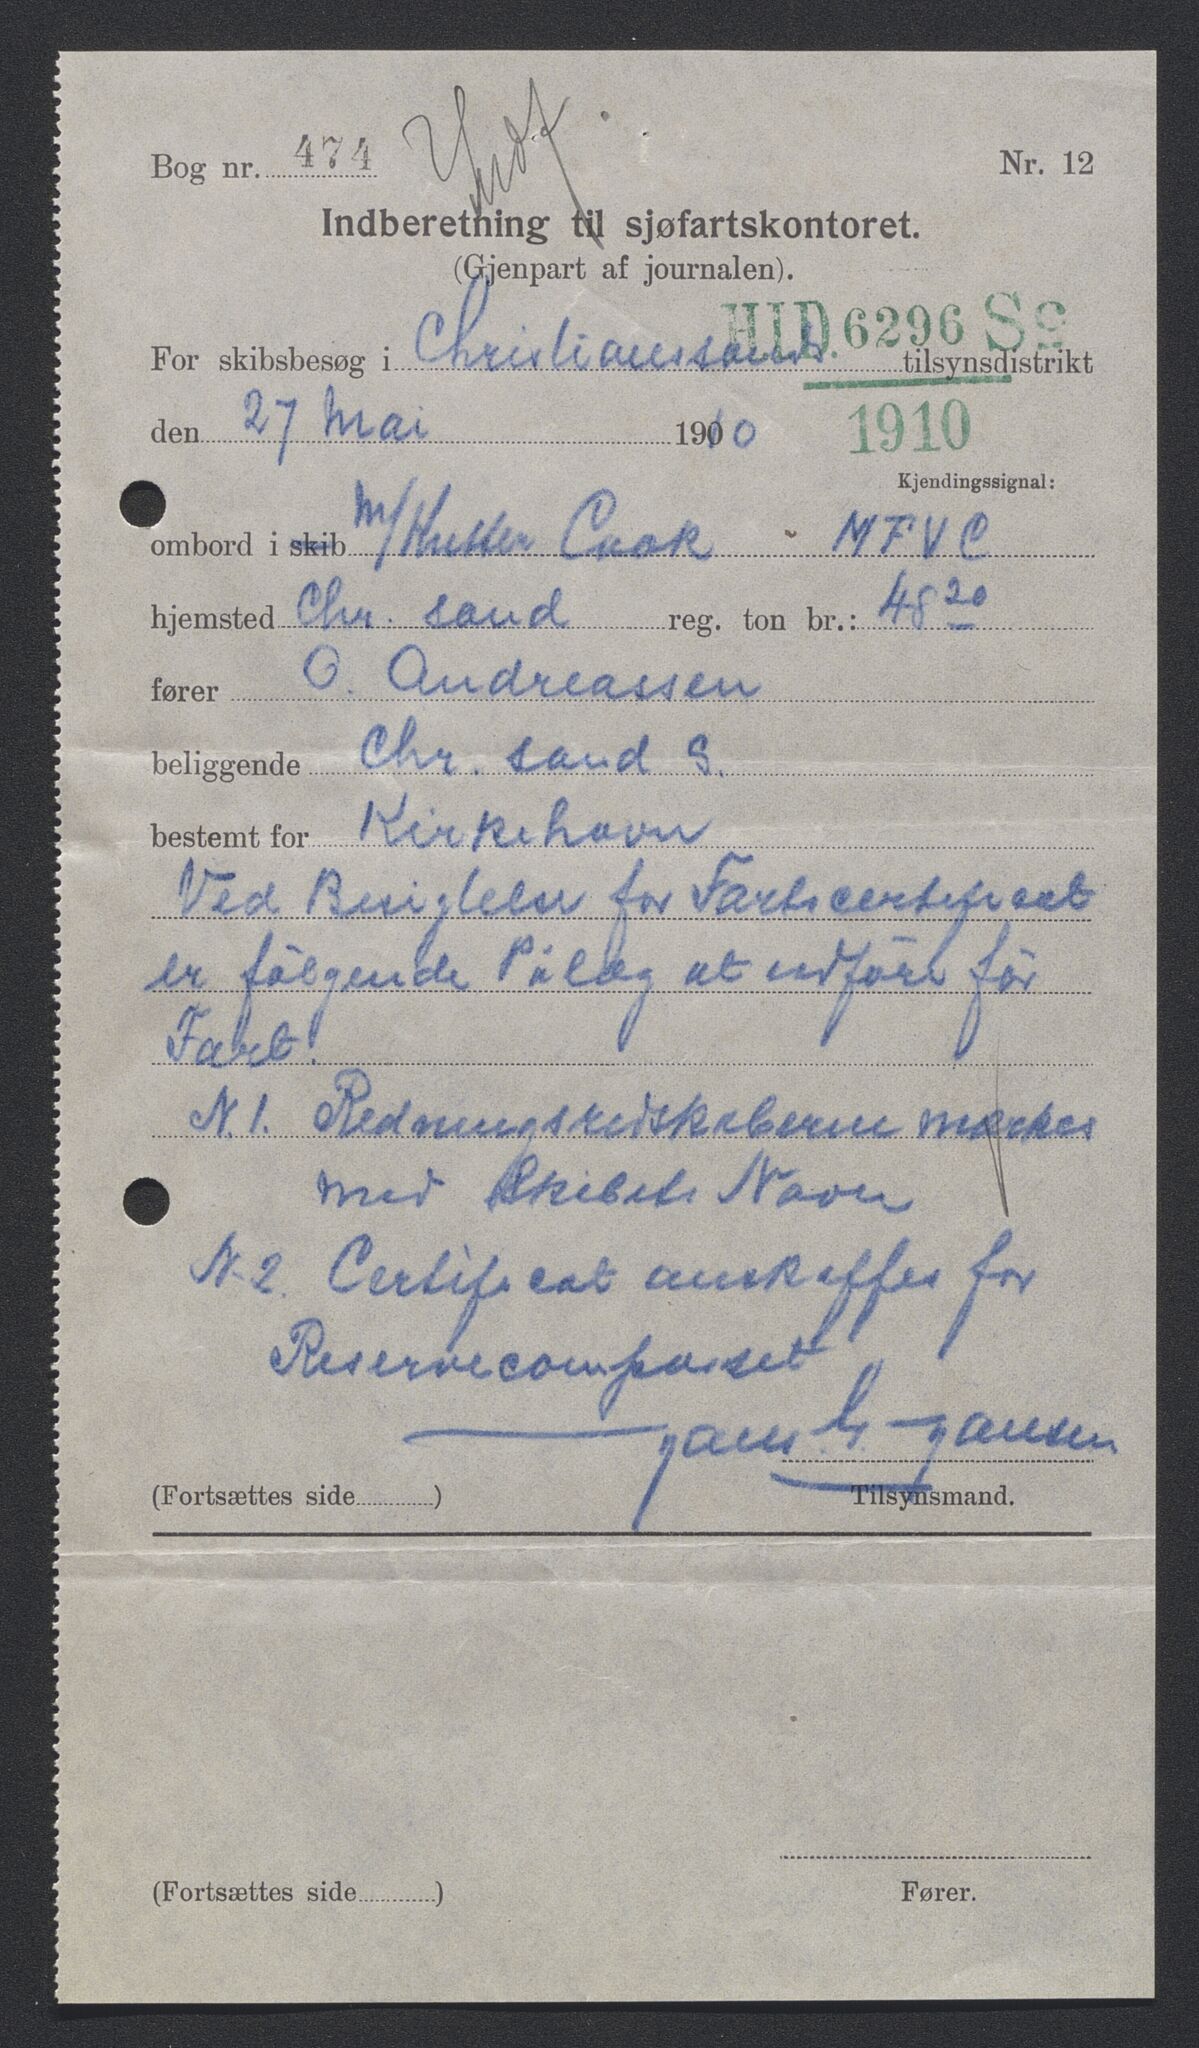 Bog nr. 474
Nr. 12
Indf
Indberetning til sjøfartskontoret.
(Gjenpart af journalen).
HID. 6296 Sc
1910
For skibsbesøg i Christianssands tilsynsdistrikt
den 27 Mai 1910
Kjendingssignal:
ombord i skib M/Kutter Cook MFVC
hjemsted Chr. sand reg. ton br.: 48 20
fører O. Andreassen
beliggende Chr. sand S.
bestemt for Kirkehavn
Ved Besigtelse for Fartscertificat
er følgende Pålæg at udføre før
Fart.
N. 1. Redningsredskaberne mærkes
med Skibets Navn
N. 2. Certificat anskaffes for
Reservecompasset
Jansen
(Fortsættes side ) Tilsynsmand.
(Fortsættes side ) Fører.